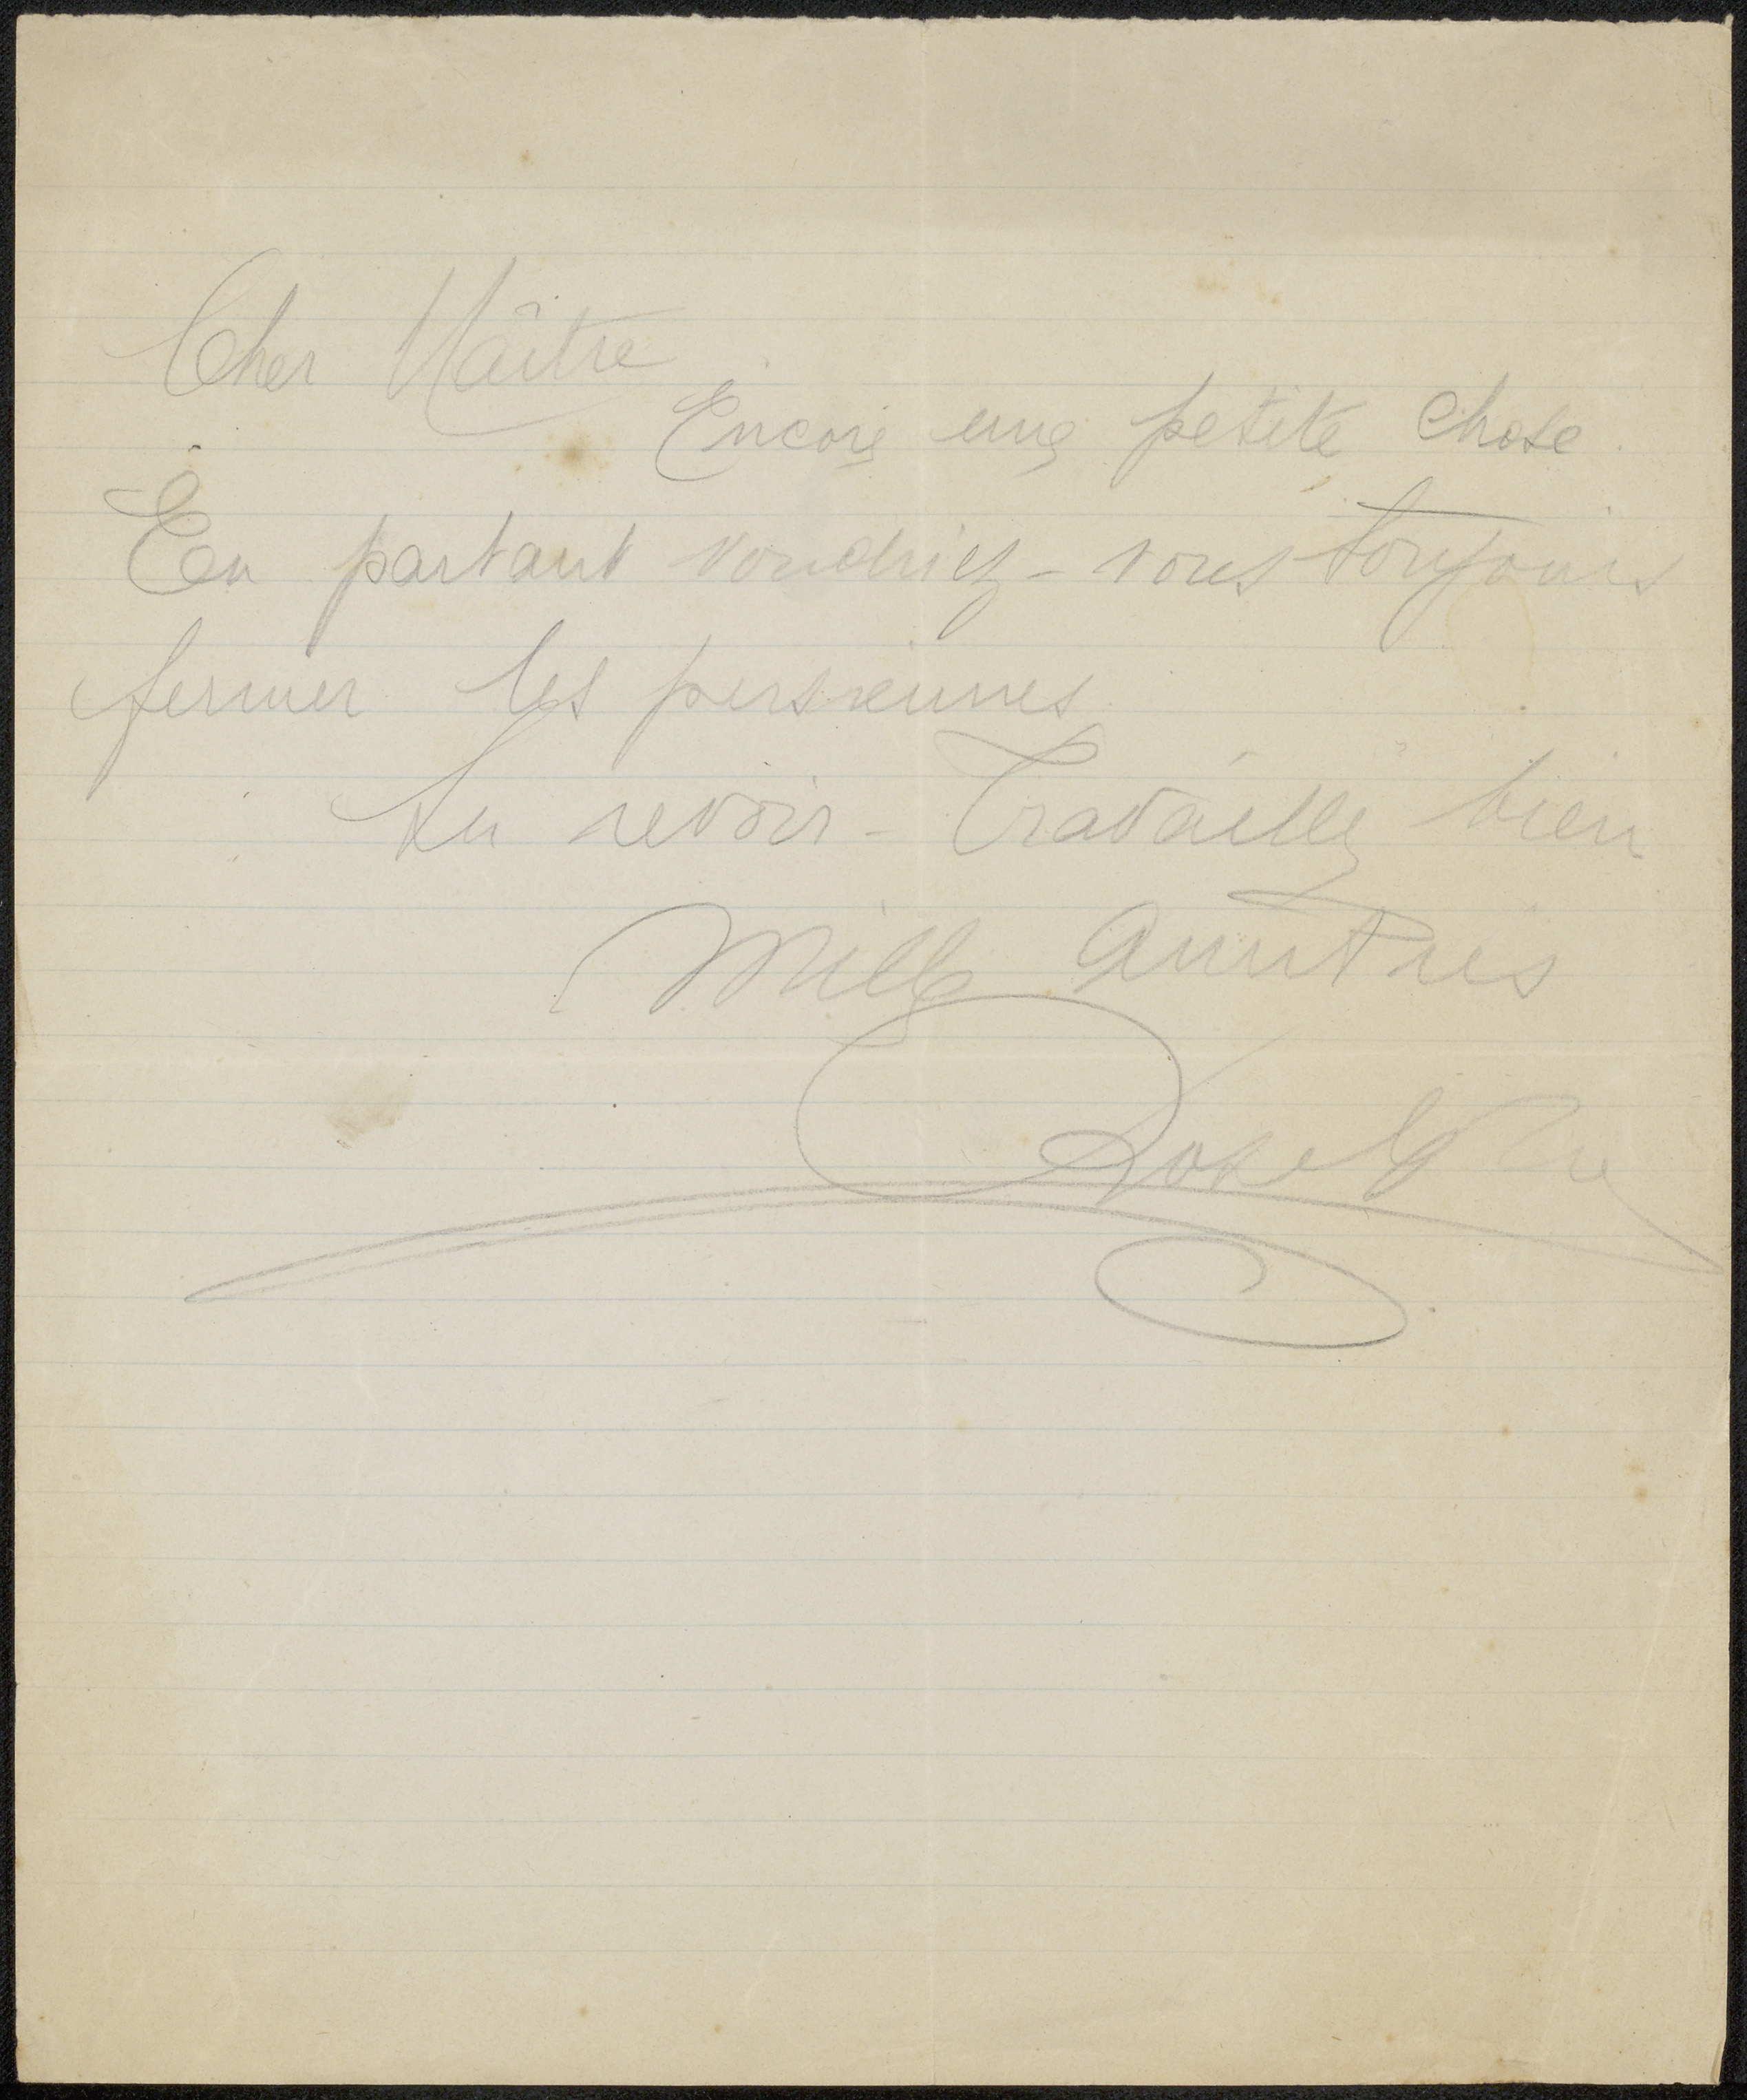 Cher Maître
Encore une petite chose.
En partant voudriez-vous toujours
fermer les persiennes
Au revoir - Travaillez bien
Mille amitiés